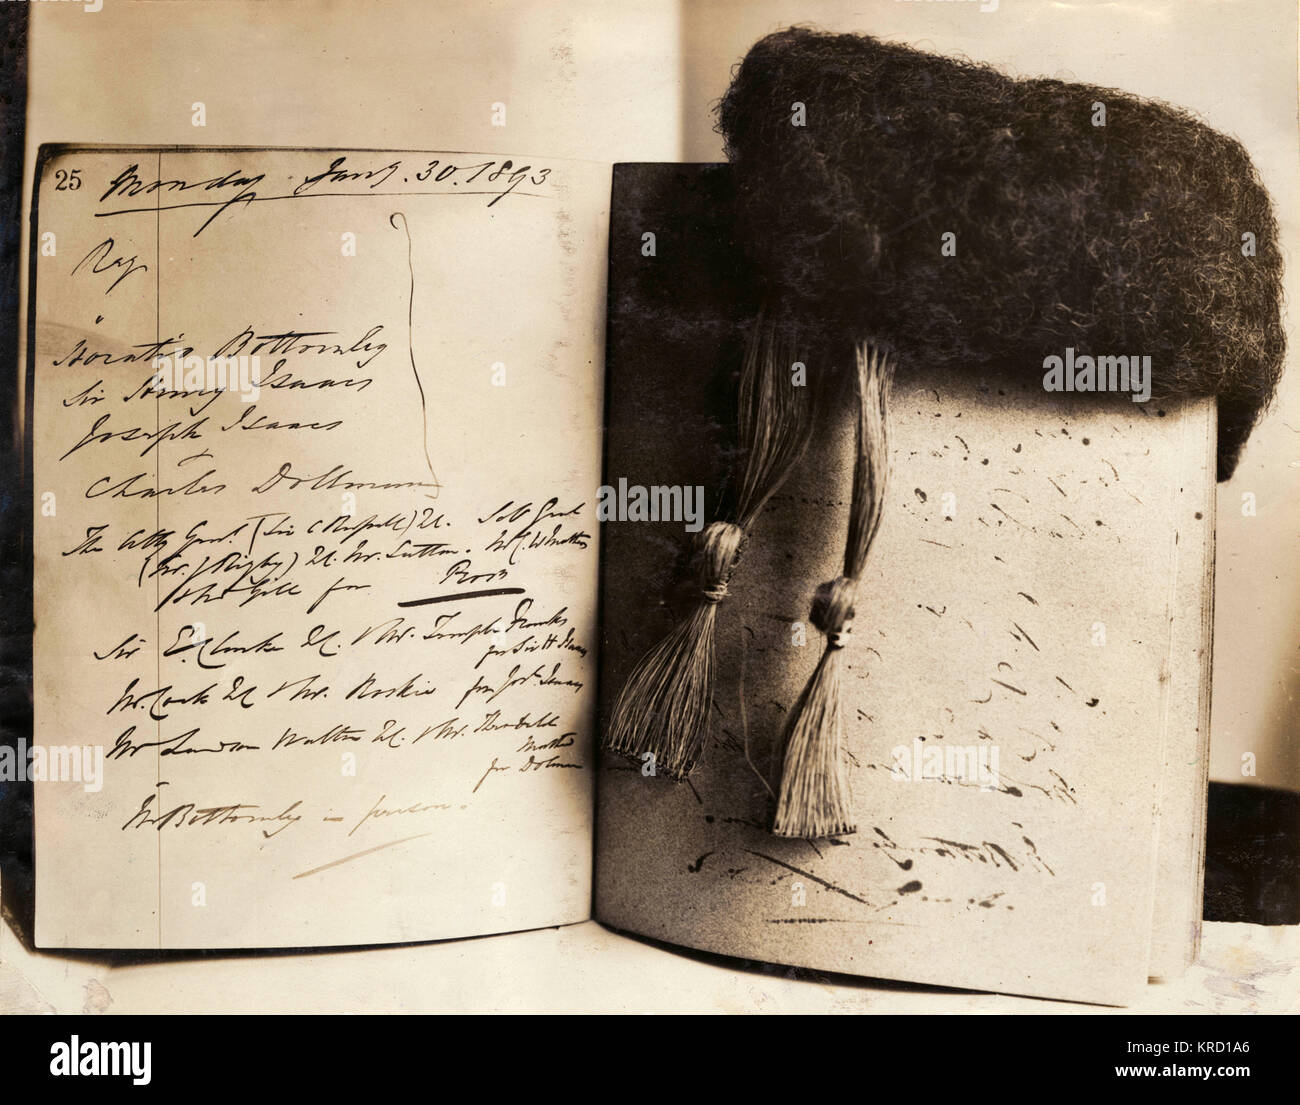 25 Monday Jany. 30. 1893
Reg.
"
Horatio Bottomley
Sir Henry Isaacs
Joseph Isaacs
Charles Dollman
The Atty Genl. (Sir C Russell) QC. Sol Genl
(Sir J Rigby) QC. Mr. Sutton. Mr C W Mathews
&  Mr Gill for Pros
Sir E. Clarke QC. & Mr. Temple Franks
for Sir H Isaacs
Mr. Cock QC & Mr. Roskie for Jos. Isaacs
Mr Lawson Walton QC. & Mr. Theobald
Mathew
for Dolman
Mr Bottomley in person.
a alamy stock photo
alamy
Image ID: KRD1A6
www.alamy.com